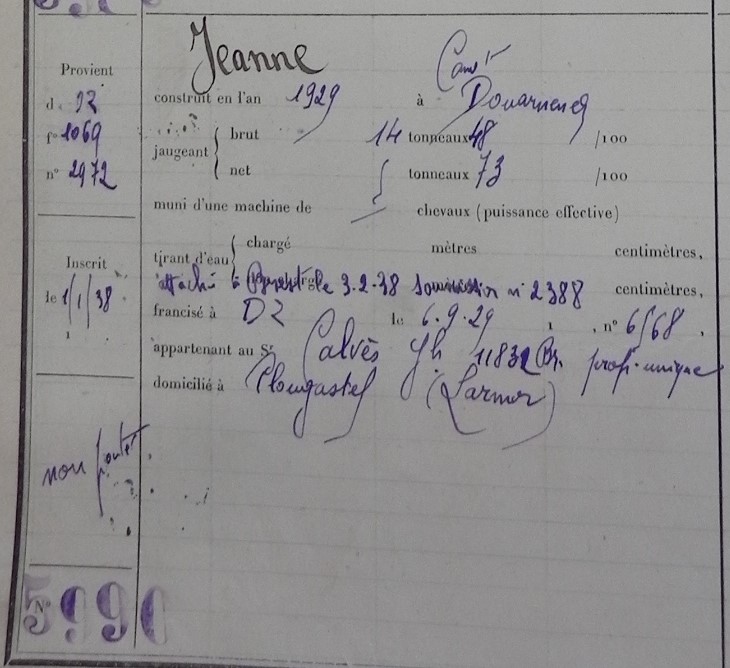 Jeanne
Provient
d. DZ
f° 1069
n° 2972
construit en l'an 1929 à Cam. Douarnenez
jaugeant { brut 14 tonneaux 48 /100
net { tonneaux 73 /100
muni d'une machine de — chevaux (puissance effective)
Inscrit
le 1/1/38.
tirant d'eau { chargé mètres centimètres,
attaché à Brest le 3-2-38 Soumission n° 2388 centimètres,
francisé à DZ le 6.9.29, n° 6/68,
appartenant au Sr Calvès Jh 11832 Br. prop. unique
domicilié à Plougastel (Larmor)
non ponté
N° 5990